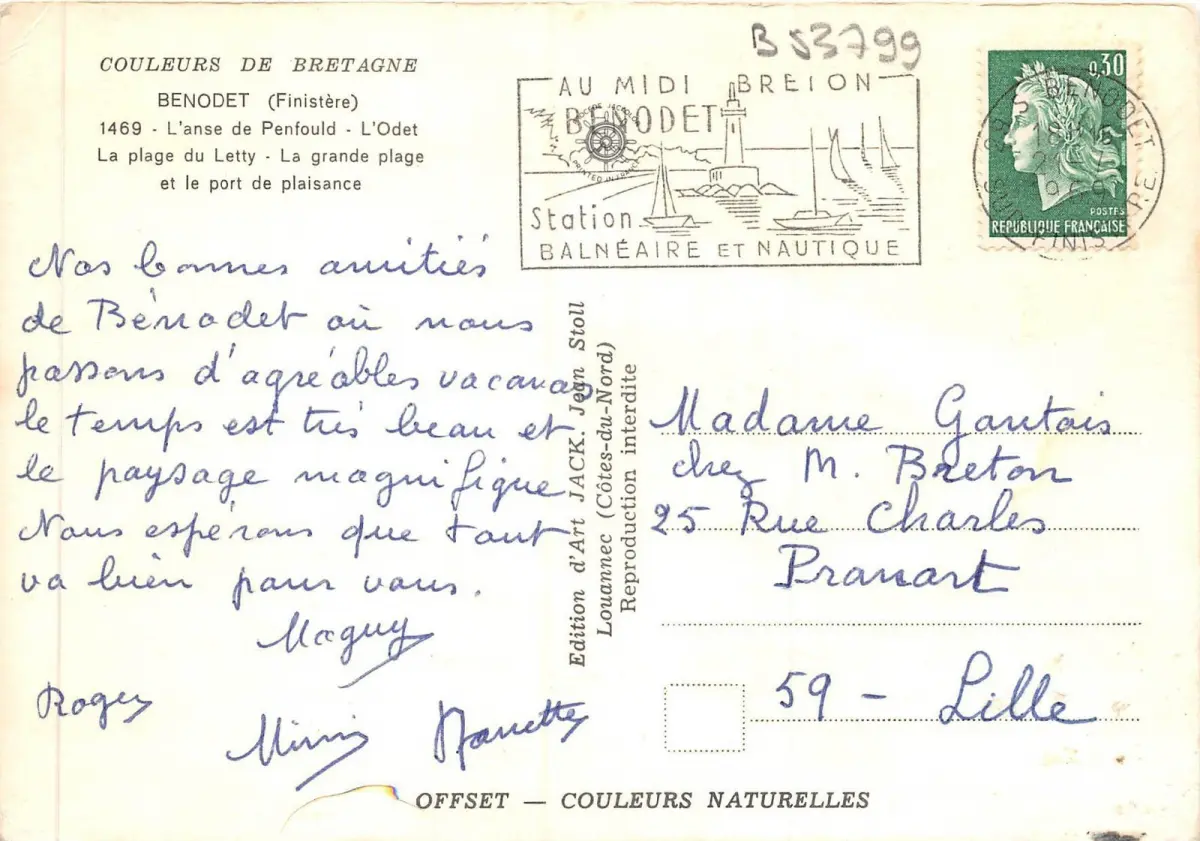 B 53799
COULEURS DE BRETAGNE
BENODET (Finistère)
1469 - L'anse de Penfould - L'Odet
La plage du Letty - La grande plage
et le port de plaisance
AU MIDI BRETON
BENODET
PRINTED IN FRANCE
Station
BALNÉAIRE ET NAUTIQUE
0,30
POSTES
RÉPUBLIQUE FRANÇAISE
BENODET
1969
FINISTERE
Nos bonnes amitiés
de Bénodet où nous
passons d'agréables vacances
le temps est très beau et
le paysage magnifique
Nous espérons que tout
va bien pour vous.
Maguy
Roger
Mimi Nanette
Edition d'Art JACK. Jean Stoll
Louannec (Côtes-du-Nord)
Reproduction interdite
Madame Gantois
chez M. Breton
25 Rue Charles
59 - Lille
OFFSET — COULEURS NATURELLES